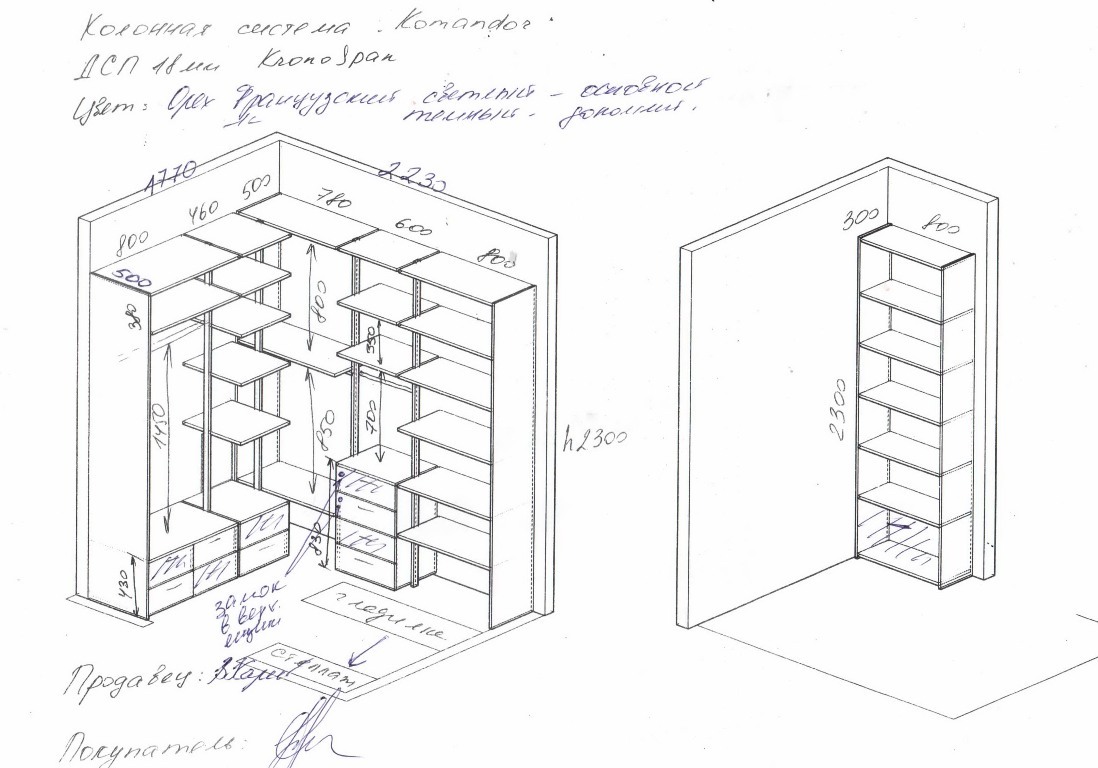 Колонная система Komandor
ДСП 18мм KronoSpan
Цвет: Орех Французский светлый - основной
темный - дополнит.
1770
2230
500
780
460
600
800
800
500
380
800
350
1450
850
700
h2300
430
830
замок
в верх.
ящик
гладилка
Продавец:
Покупатель:
300
800
2300